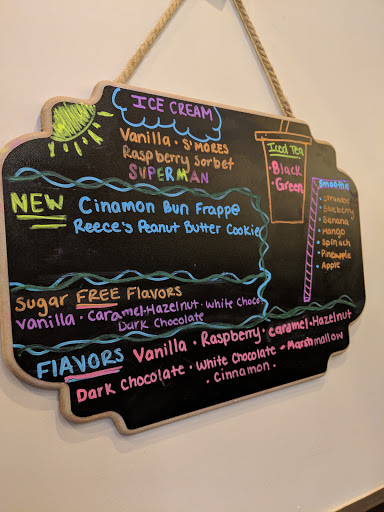 ICE CREAM
Vanilla · S'MORES
Raspberry Sorbet
SUPERMAN
Iced Tea
· Black
· Green
NEW Cinamon Bun Frapp@
Reece's Peanut Butter Cookie
Smoothie
· Strawba
· Blueberry
· Banana
· Mango
· Spinach
· Pineapple
· Apple
Sugar FREE Flavors
Vanilla · Caramel · Hazelnut · White Choco
Dark Chocolate
FlAVORS Vanilla · Raspberry · Caramel · Hazelnut
Dark Chocolate · White Chocolate - Marshmallow
· Cinnamon ·